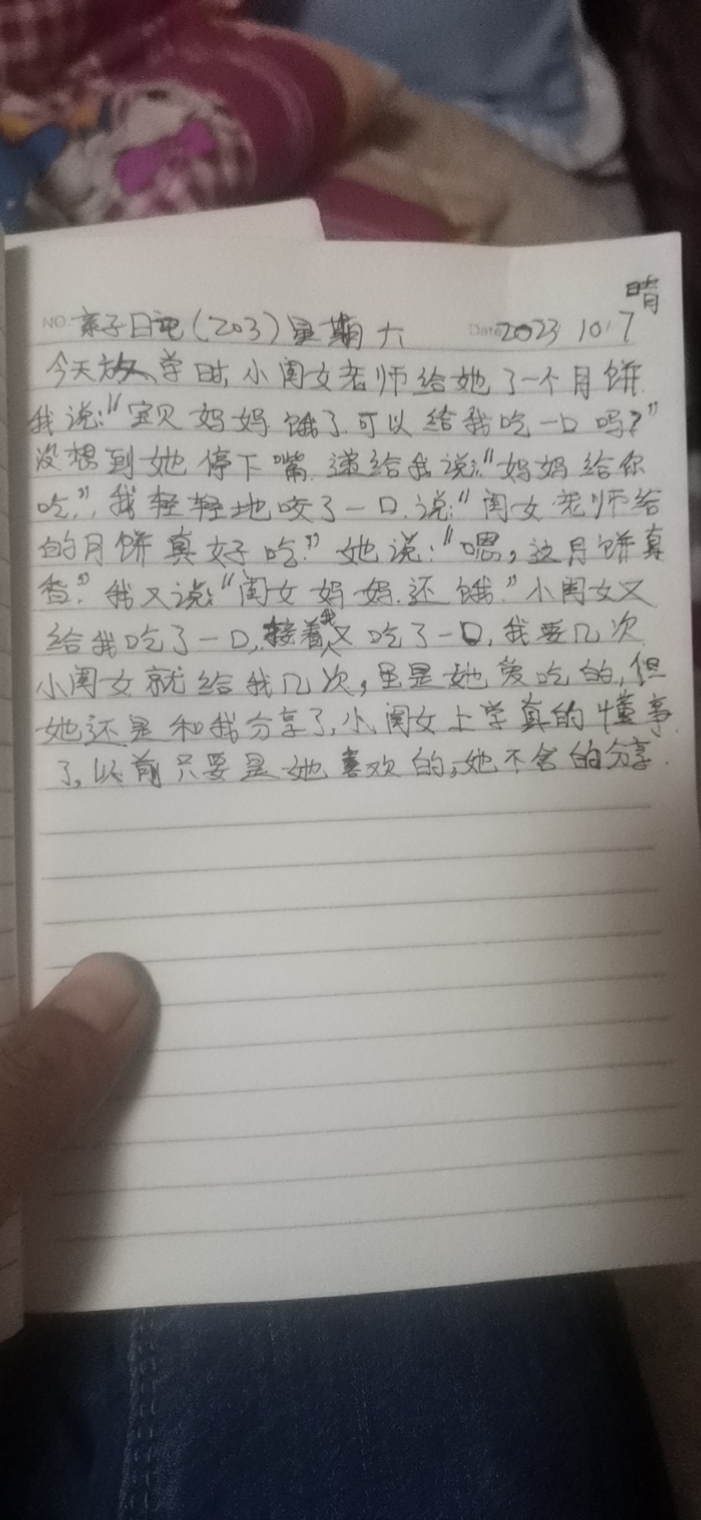 晴
NO. 亲子日记(203)星期六 Date 2023 10 7
今天放学时,小闺女老师给她了一个月饼.
我说:"宝贝妈妈饿了.可以给我吃一口吗?"
没想到她停下嘴.递给我说:"妈妈给你
吃.",我轻轻地咬了一口.说:"闺女老师给
的月饼真好吃."她说:"嗯,这月饼真
香."我又说:"闺女妈妈.还饿."小闺女又
给我吃了一口,接着我又吃了一口,我要几次
小闺女就给我几次,虽是她爱吃的,但
她还是和我分享了,小闺女上学真的懂事
了,以前只要是她喜欢的,她不舍的分享.